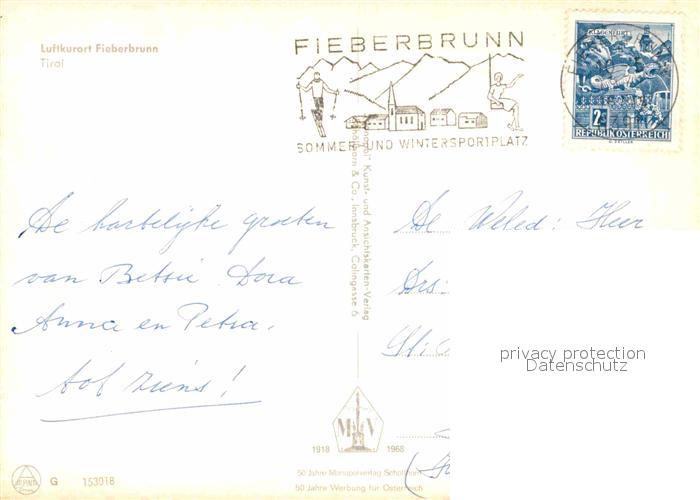 Luftkurort Fieberbrunn
Tirol
FIEBERBRUNN
SOMMER- UND WINTERSPORTPLATZ
KLAGENFURT
2
REPUBLIK ÖSTERREICH
Kunst- und Ansichtskarten-Verlag
& Co., Innsbruck, Colingasse 6
De hartelijke groeten
van Betsie Dora
Anna en Petra.
tot ziens!
De Weled: Heer
Drs:
privacy protection
Datenschutz
M V
1918 1968
50 Jahre Monopolverlag
50 Jahre Werbung für Österreich
ALPINA
G 153018